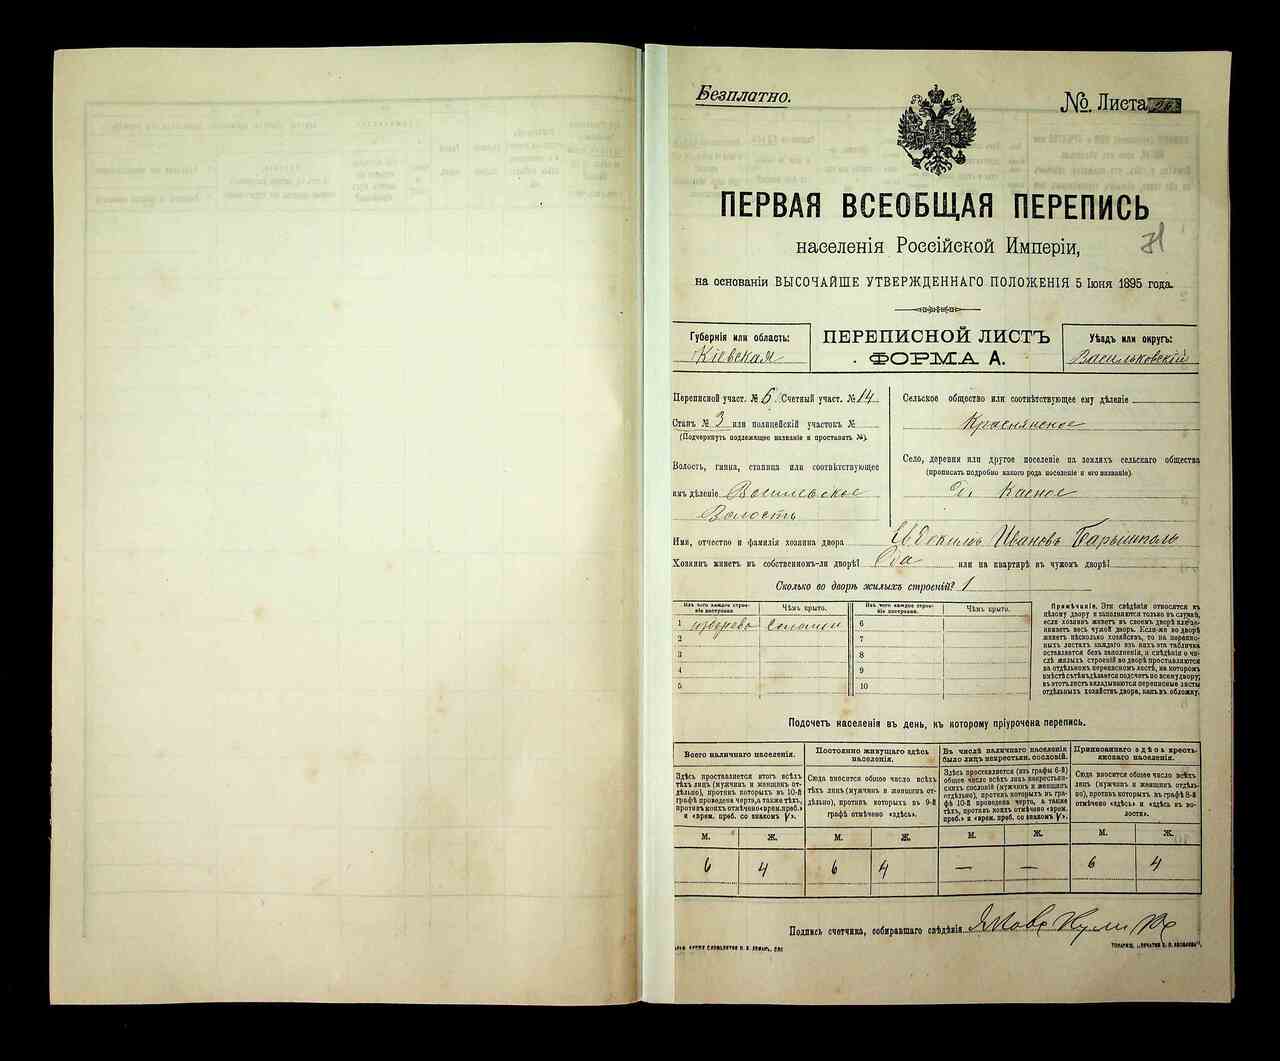 Безплатно.
№ Листа
ПЕРВАЯ ВСЕОБЩАЯ ПЕРЕПИСЬ
населенія Россійской Имперіи,
на основаніи ВЫСОЧАЙШЕ УТВЕРЖДЕННАГО ПОЛОЖЕНІЯ 5 Іюня 1895 года.
Губернія или область:
Кіевская
ПЕРЕПИСНОЙ ЛИСТЪ
ФОРМА А.
Уѣздъ или округъ:
Васильковскій
Переписной участ. № 6 Счетный участ. № 14
Станъ № 3 или полицейскій участокъ №
(Подчеркнуть подлежащее названіе и проставить №).
Волость, гмина, станица или соотвѣтствующее
имъ дѣленіе
Волость
Сельское общество или соотвѣтствующее ему дѣленіе
Краснянское
Село, деревня или другое поселеніе на земляхъ сельскаго общества
(прописать подробно какого рода поселеніе и его названіе).
Имя, отчество и фамилія хозяина двора Евдокимъ Ивановъ Барышполь
Хозяинъ живетъ въ собственномъ-ли дворѣ? Да или на квартирѣ въ чужомъ дворѣ?
Сколько во дворѣ жилыхъ строеній? 1
Изъ чего каждое строеніе построено.
Чѣмъ крыто.
Изъ чего каждое строеніе построено.
Чѣмъ крыто.
1 издерева Соломой 6
2 7
3 8
4 9
5 10
Примѣчаніе. Эти свѣдѣнія относятся къ
цѣлому двору и заполняются только въ случаѣ,
если хозяинъ живетъ въ своемъ дворѣ или занимаетъ
весь чужой дворъ. Если-же во дворѣ
живетъ нѣсколько хозяйствъ, то на переписныхъ
листахъ каждаго изъ нихъ эта табличка
оставляется безъ заполненія, а свѣдѣнія о числѣ
жилыхъ строеній во дворѣ проставляются
на отдѣльномъ переписномъ листѣ, на которомъ
вмѣстѣ съ тѣмъ дѣлается подсчетъ по всему двору;
въ этотъ листъ вкладываются переписные листы
отдѣльныхъ хозяйствъ двора, какъ въ обложку.
Подсчетъ населенія въ день, къ которому пріурочена перепись.
Всего наличнаго населенія.
Здѣсь проставляется итогъ всѣхъ
тѣхъ лицъ (мужчинъ и женщинъ отдѣльно),
противъ которыхъ въ 10-й
графѣ проведена черта, а также тѣхъ,
противъ коихъ отмѣчено «врем. преб.»
и «врем. преб. со знакомъ V».
Постоянно живущаго здѣсь населенія.
Сюда вносится общее число всѣхъ
тѣхъ лицъ (мужчинъ и женщинъ отдѣльно),
противъ которыхъ въ 9-й
графѣ отмѣчено «здѣсь».
Въ числѣ наличнаго населенія
было лицъ некрестьян. сословій.
Здѣсь проставляется (изъ графы 6-й)
общее число всѣхъ лицъ некрестьянскихъ
сословій (мужчинъ и женщинъ
отдѣльно), противъ которыхъ въ графѣ
10-й проведена черта, а также
тѣхъ, противъ коихъ отмѣчено «врем.
преб.» и «врем. преб. со знакомъ V».
Приписаннаго здѣсь крестьянскаго населенія.
Сюда вносится общее число всѣхъ
лицъ (мужчинъ и женщинъ отдѣльно),
противъ которыхъ въ графѣ 8-й
отмѣчено «здѣсь» и «здѣсь въ волости».
М. Ж. М. Ж. М. Ж. М. Ж.
6 4 6 4 — — 6 4
Подпись счетчика, собиравшаго свѣдѣнія